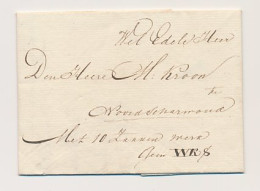 Wel Edele Heer
Den Heere M. Kroon
te
Noordscharwoude
Met 10 zakken merk
Geen WKS